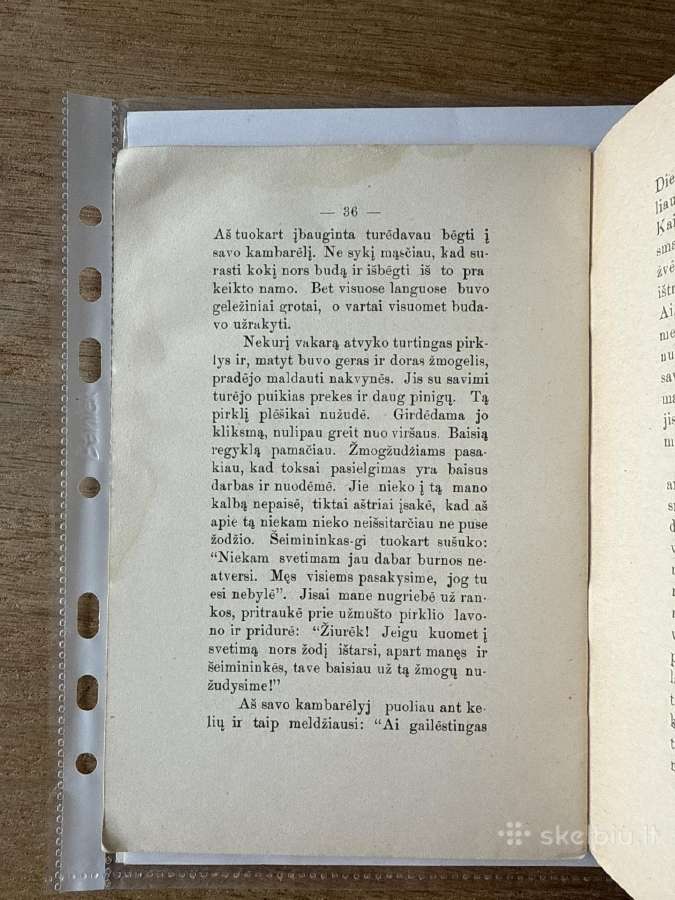 — 36 —
Aš tuokart įbauginta turėdavau bėgti į
savo kambarėlį. Ne sykį mąsčiau, kad su-
rasti kokį nors budą ir išbėgti iš to pra
keikto namo. Bet visuose languose buvo
geležiniai grotai, o vartai visuomet buda-
vo užrakyti.
Nekurį vakarą atvyko turtingas pirk-
lys ir, matyt buvo geras ir doras žmogelis,
pradėjo maldauti nakvynės. Jis su savimi
turėjo puikias prekes ir daug pinigų. Tą
pirklį plėšikai nužudė. Girdėdama jo
kliksmą, nulipau greit nuo viršaus. Baisią
regyklą pamačiau. Žmogžudžiams pasa-
kiau, kad toksai pasielgimas yra baisus
darbas ir nuodėmė. Jie nieko į tą mano
kalbą nepaisė, tiktai aštriai įsakė, kad aš
apie tą niekam nieko neišsitarčiau ne puse
žodžio. Šeimininkas-gi tuokart sušuko:
“Niekam svetimam jau dabar burnos ne-
atversi. Męs visiems pasakysime, jog tu
esi nebylė”. Jisai mane nugriebė už ran-
kos, pritraukė prie užmušto pirklio lavo-
no ir pridurė: “Žiurėk! Jeigu kuomet į
svetimą nors žodį ištarsi, apart manęs ir
šeimininkės, tave baisiau už tą žmogų nu-
žudysime!”
Aš savo kambarėlyj puoliau ant ke-
lių ir taip meldžiausi: “Ai gailėstingas
Die
liau
Kai
sma
žvė
ištr
Ai,
me
nu
sav
ma
jis
m
skelbiu.lt